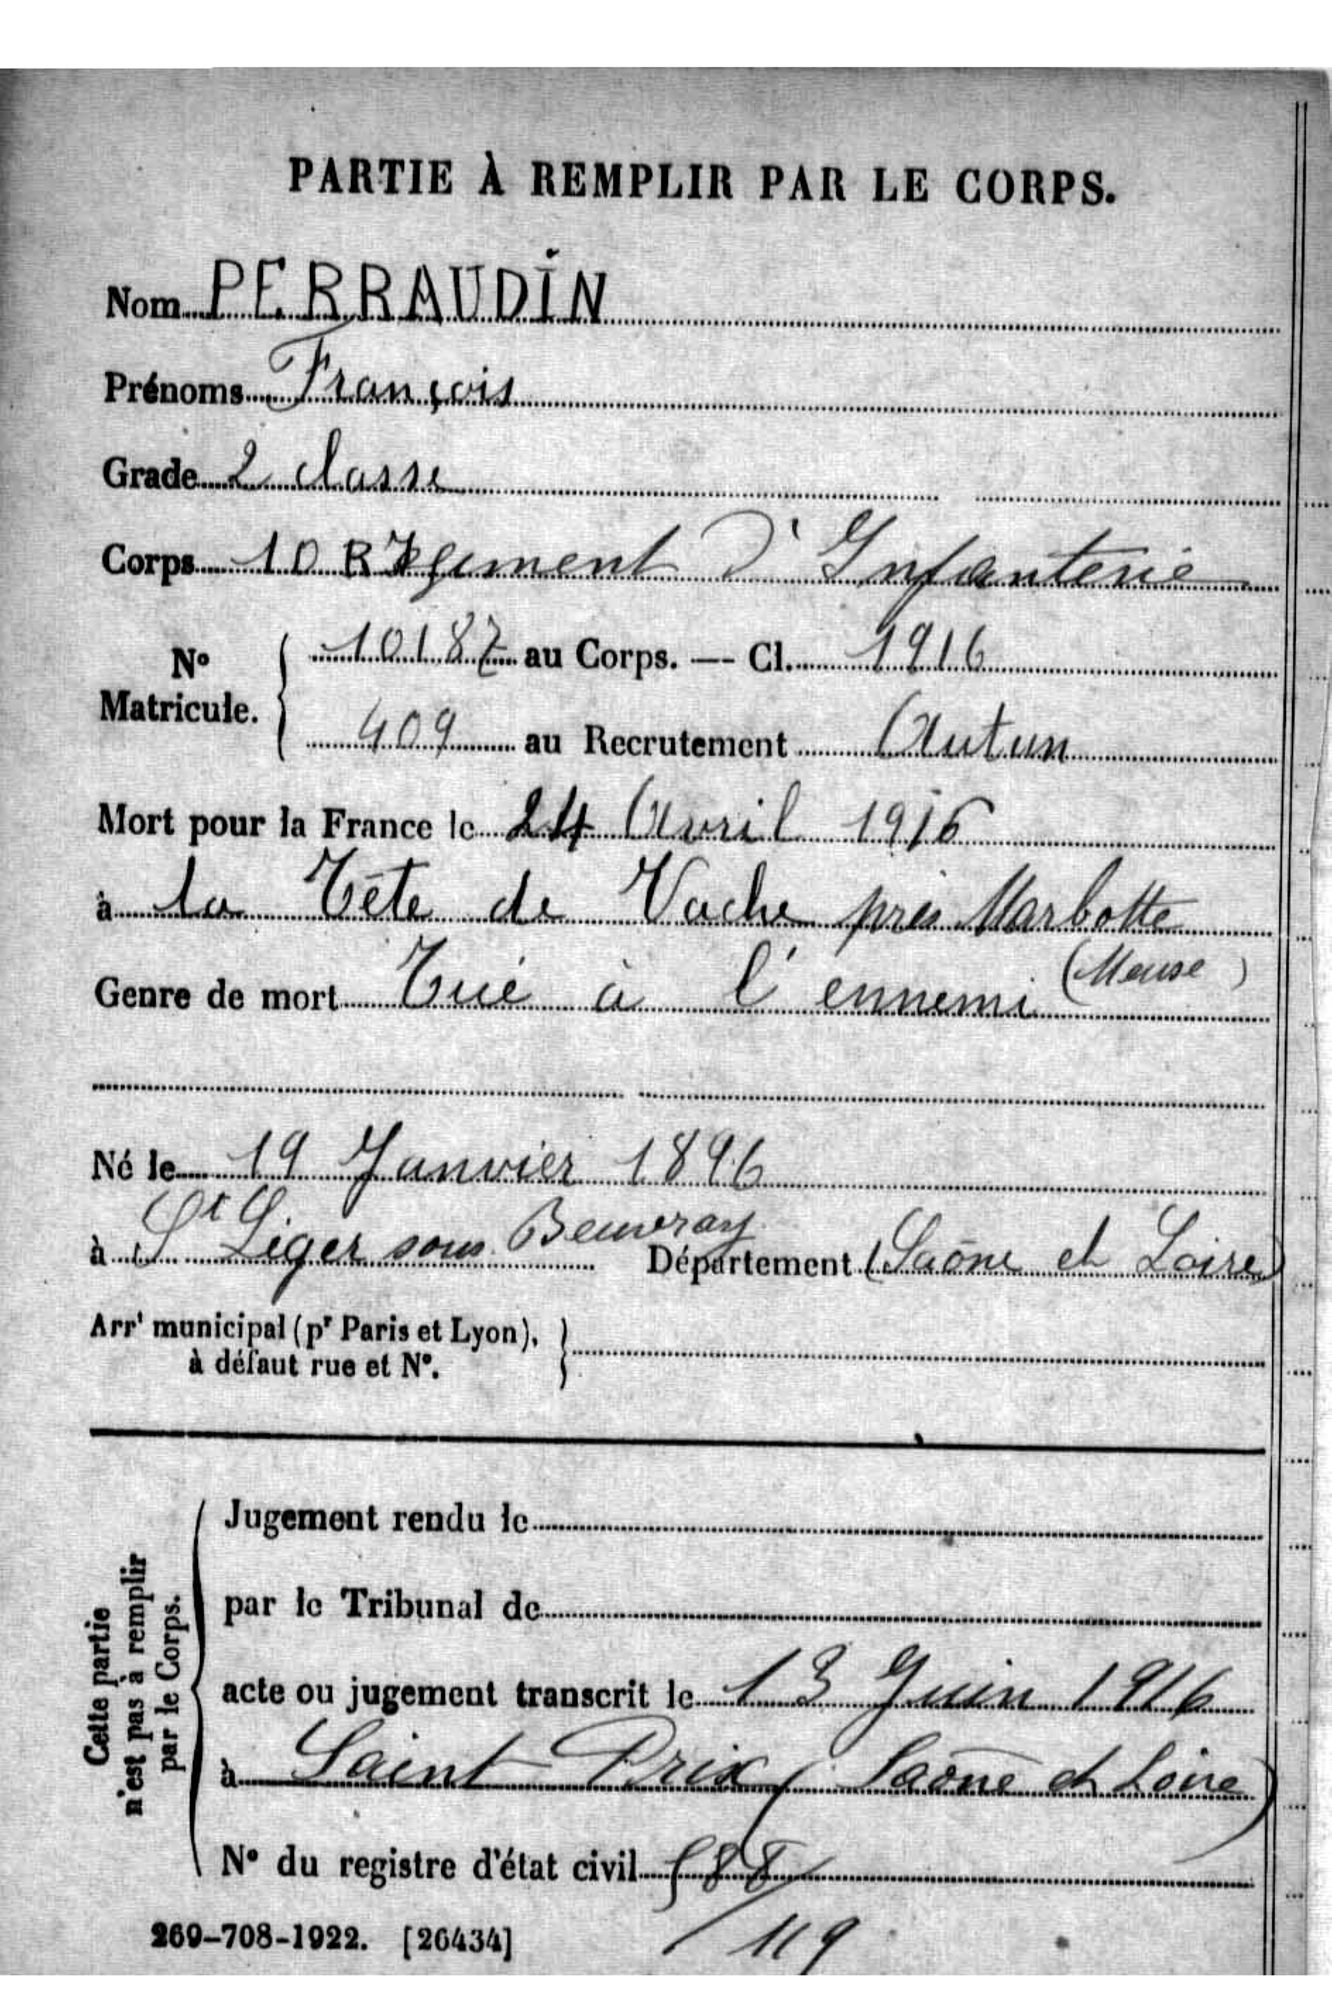 PARTIE À REMPLIR PAR LE CORPS.
Nom PERRAUDIN
Prénoms François
Grade 2 classe
Corps 10 Régiment d'Infanterie
N° Matricule. { 10187 au Corps. — Cl. 1916
409 au Recrutement Autun
Mort pour la France le 24 Avril 1916
à la Tête de Vache près Marbotte
(Meuse)
Genre de mort Tué à l'ennemi
Né le 19 Janvier 1896
à St Léger sous Beuvray Département (Saône et Loire)
Arrt municipal (pr Paris et Lyon), }
à défaut rue et N°.
Cette partie
n'est pas à remplir
par le Corps.
Jugement rendu le
par le Tribunal de
acte ou jugement transcrit le 13 Juin 1916
à Saint Prix (Saône et Loire)
N° du registre d'état civil
269-708-1922. [26434]
119